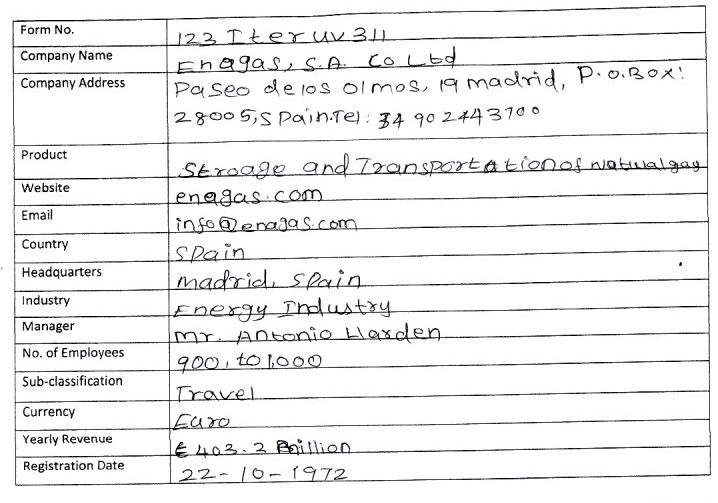 Form No. 123 Iter uv 311
Company Name Enagas, S.A. Co Ltd
Company Address Paseo de los olmos, 19 madrid, P.O.Box:
28005, Spain.Tel: 34 902443700
Product Stroage and Transportation of natural gas
Website enagas.com
Email info@enagas.com
Country Spain
Headquarters madrid, Spain
Industry Energy Industry
Manager mr. Antonio Llarden
No. of Employees 900, to 1,000
Sub-classification Travel
Currency Euro
Yearly Revenue € 403.2 million
Registration Date 22-10-1972